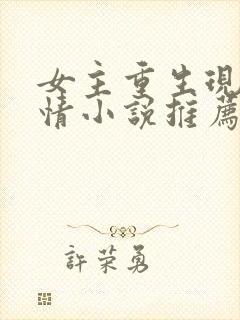 女主重生現
情小說推薦
許荣勇